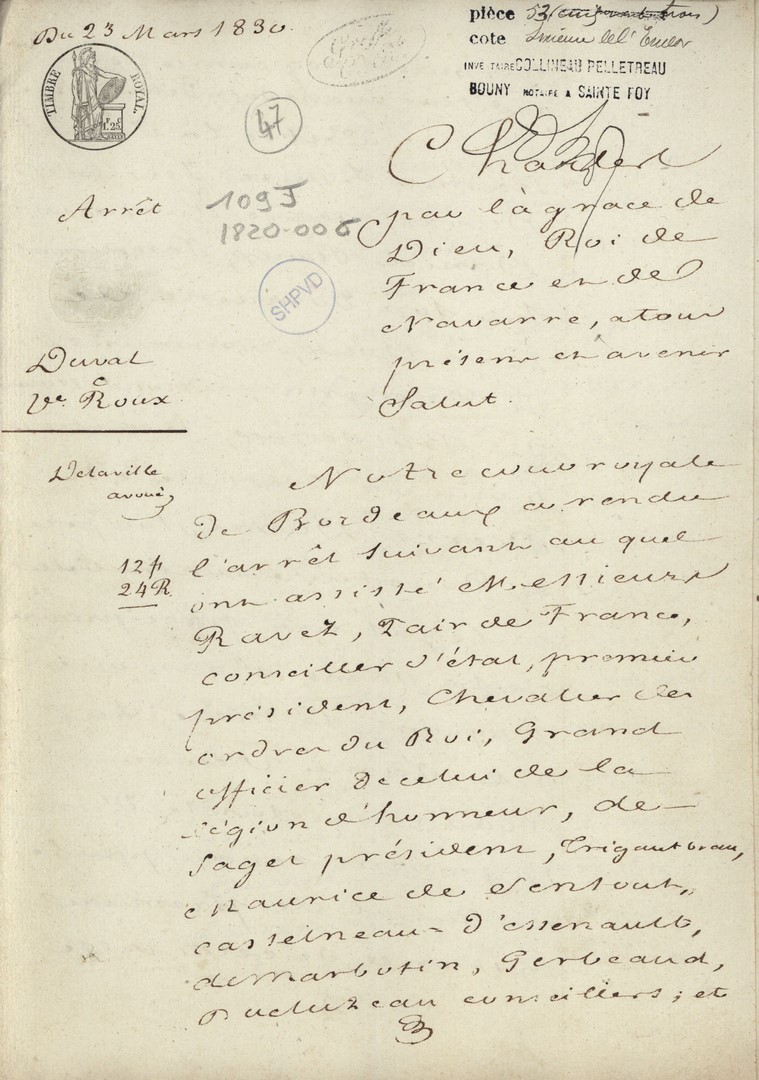 Du 23 Mars 1830.
pièce 53
cote
INVENTAIRE COLLINEAU PELLETREAU
BOUNY NOTAIRE A SAINTE FOY
TIMBRE ROYAL
1.25
47
Arrêt
109J
1820-006
SHPVD
Duval
C
Ve Roux
Delaville
avoué
12 f
24 R
Charles
par la grace de
Dieu, Roi de
France et de
Navarre, a tous
présens et avenir
Salut.
Notre cour royale
de Bordeaux a rendu
l'arrêt suivant au quel
ont assisté Messieurs
Ravez, Pair de France,
conseiller d'état, premier
président, Chevalier des
ordres du Roi, Grand
officier de celui de la
légion d'honneur, de
Saget président, Trigant brau,
Maurice de Sentout,
casselneau-d'essenault,
de Marbotin, Gerbeaud,
Ducluzeau conseillers; et